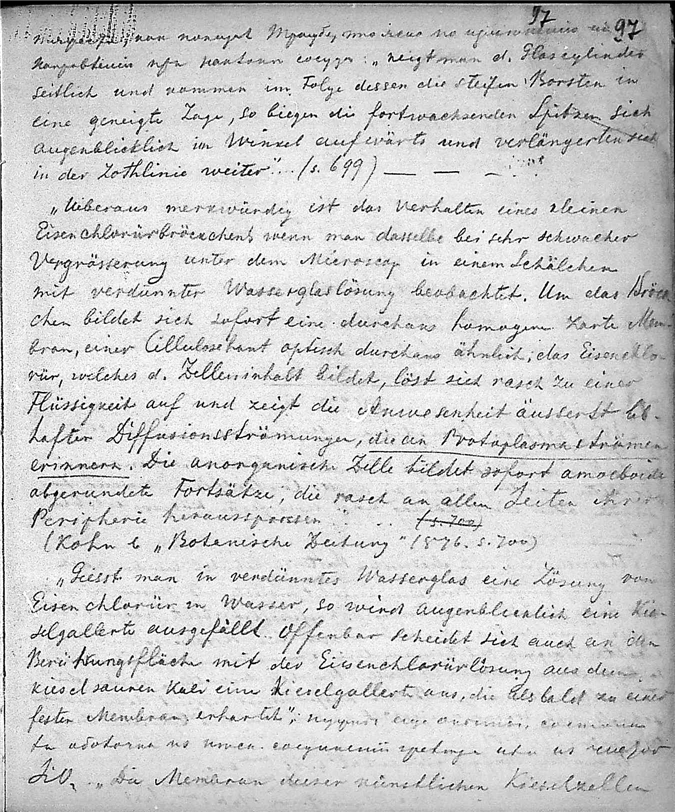 97 97
neigt man d. Glascylinder
seitlich und kommen im Folge dessen die steifen Borsten in
eine geneigte Lage, so biegen die fortwachsenden Spitzen sich
augenblicklich im Winkel aufwärts und verlängerten sich
in der Lothlinie weiter"... (s. 699) — — —
„Ueberaus merkwürdig ist das Verhalten eines kleinen
Eisenchlorürbröckchens wenn man dasselbe bei sehr schwacher
Vergrösserung unter dem Microscop in einem Schälchen
mit verdünnter Wasserglaslösung beobachtet. Um das Bröck
chen bildet sich sofort eine durchaus homogene zarte Mem-
bran, einer Cellulosehaut optisch durchaus ähnlich; das Eisenchlo-
rür, welches d. Zelleninhalt bildet, löst sich rasch zu einer
Flüssigkeit auf und zeigt die Anwesenheit äusserst leb-
hafter Diffusionsströmungen, die an Protoplasmaströmen
erinnern. Die anorganische Zelle bildet sofort amoeboide
abgerundete Fortsätze, die rasch an allen Seiten ihrer
Peripherie heraussprossen" ... (s. 700)
(Kohn b „Botanische Zeitung" 1876. s. 700)
„Giesst man in verdünntes Wasserglas eine Lösung von
Eisenchlorür in Wasser, so wird augenblicklich eine Kie-
selgallerte ausgefällt. Offenbar scheidet sich auch an den
Berührungsfläche mit der Eisenchlorürlösung aus dem
kieselsauren Kali eine Kieselgallerte aus, die alsbald zu einer
festen Membran erhartet";
SiO₂ „Die Membran dieser künstlichen Kieselzellen